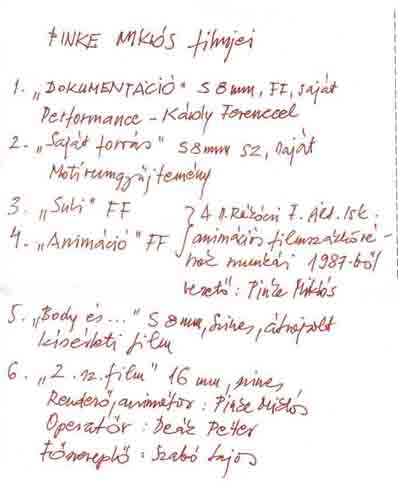 PINKE MIKlós filmjei
1. „DOKUMENTÁCIÓ" S 8 mm, FF, saját
Performance - Károly Ferenccel
2. „Saját forrás" S 8 mm SZ, saját
Motívumgyűjtemény
3. „Suli" FF
4. „Animáció" FF
} A II. Rákóczi F. Ált. Isk.
animációs filmszakköré-
nek munkái 1987-ből
vezető: Pinke Miklós
5. „Body és..." S 8 mm, színes, átrajzolt
kísérleti film
6. „2. sz. film" 16 mm, színes
Rendező, animátor: Pinke Miklós
Operatőr: Deák Péter
Főszereplő: Szabó Lajos